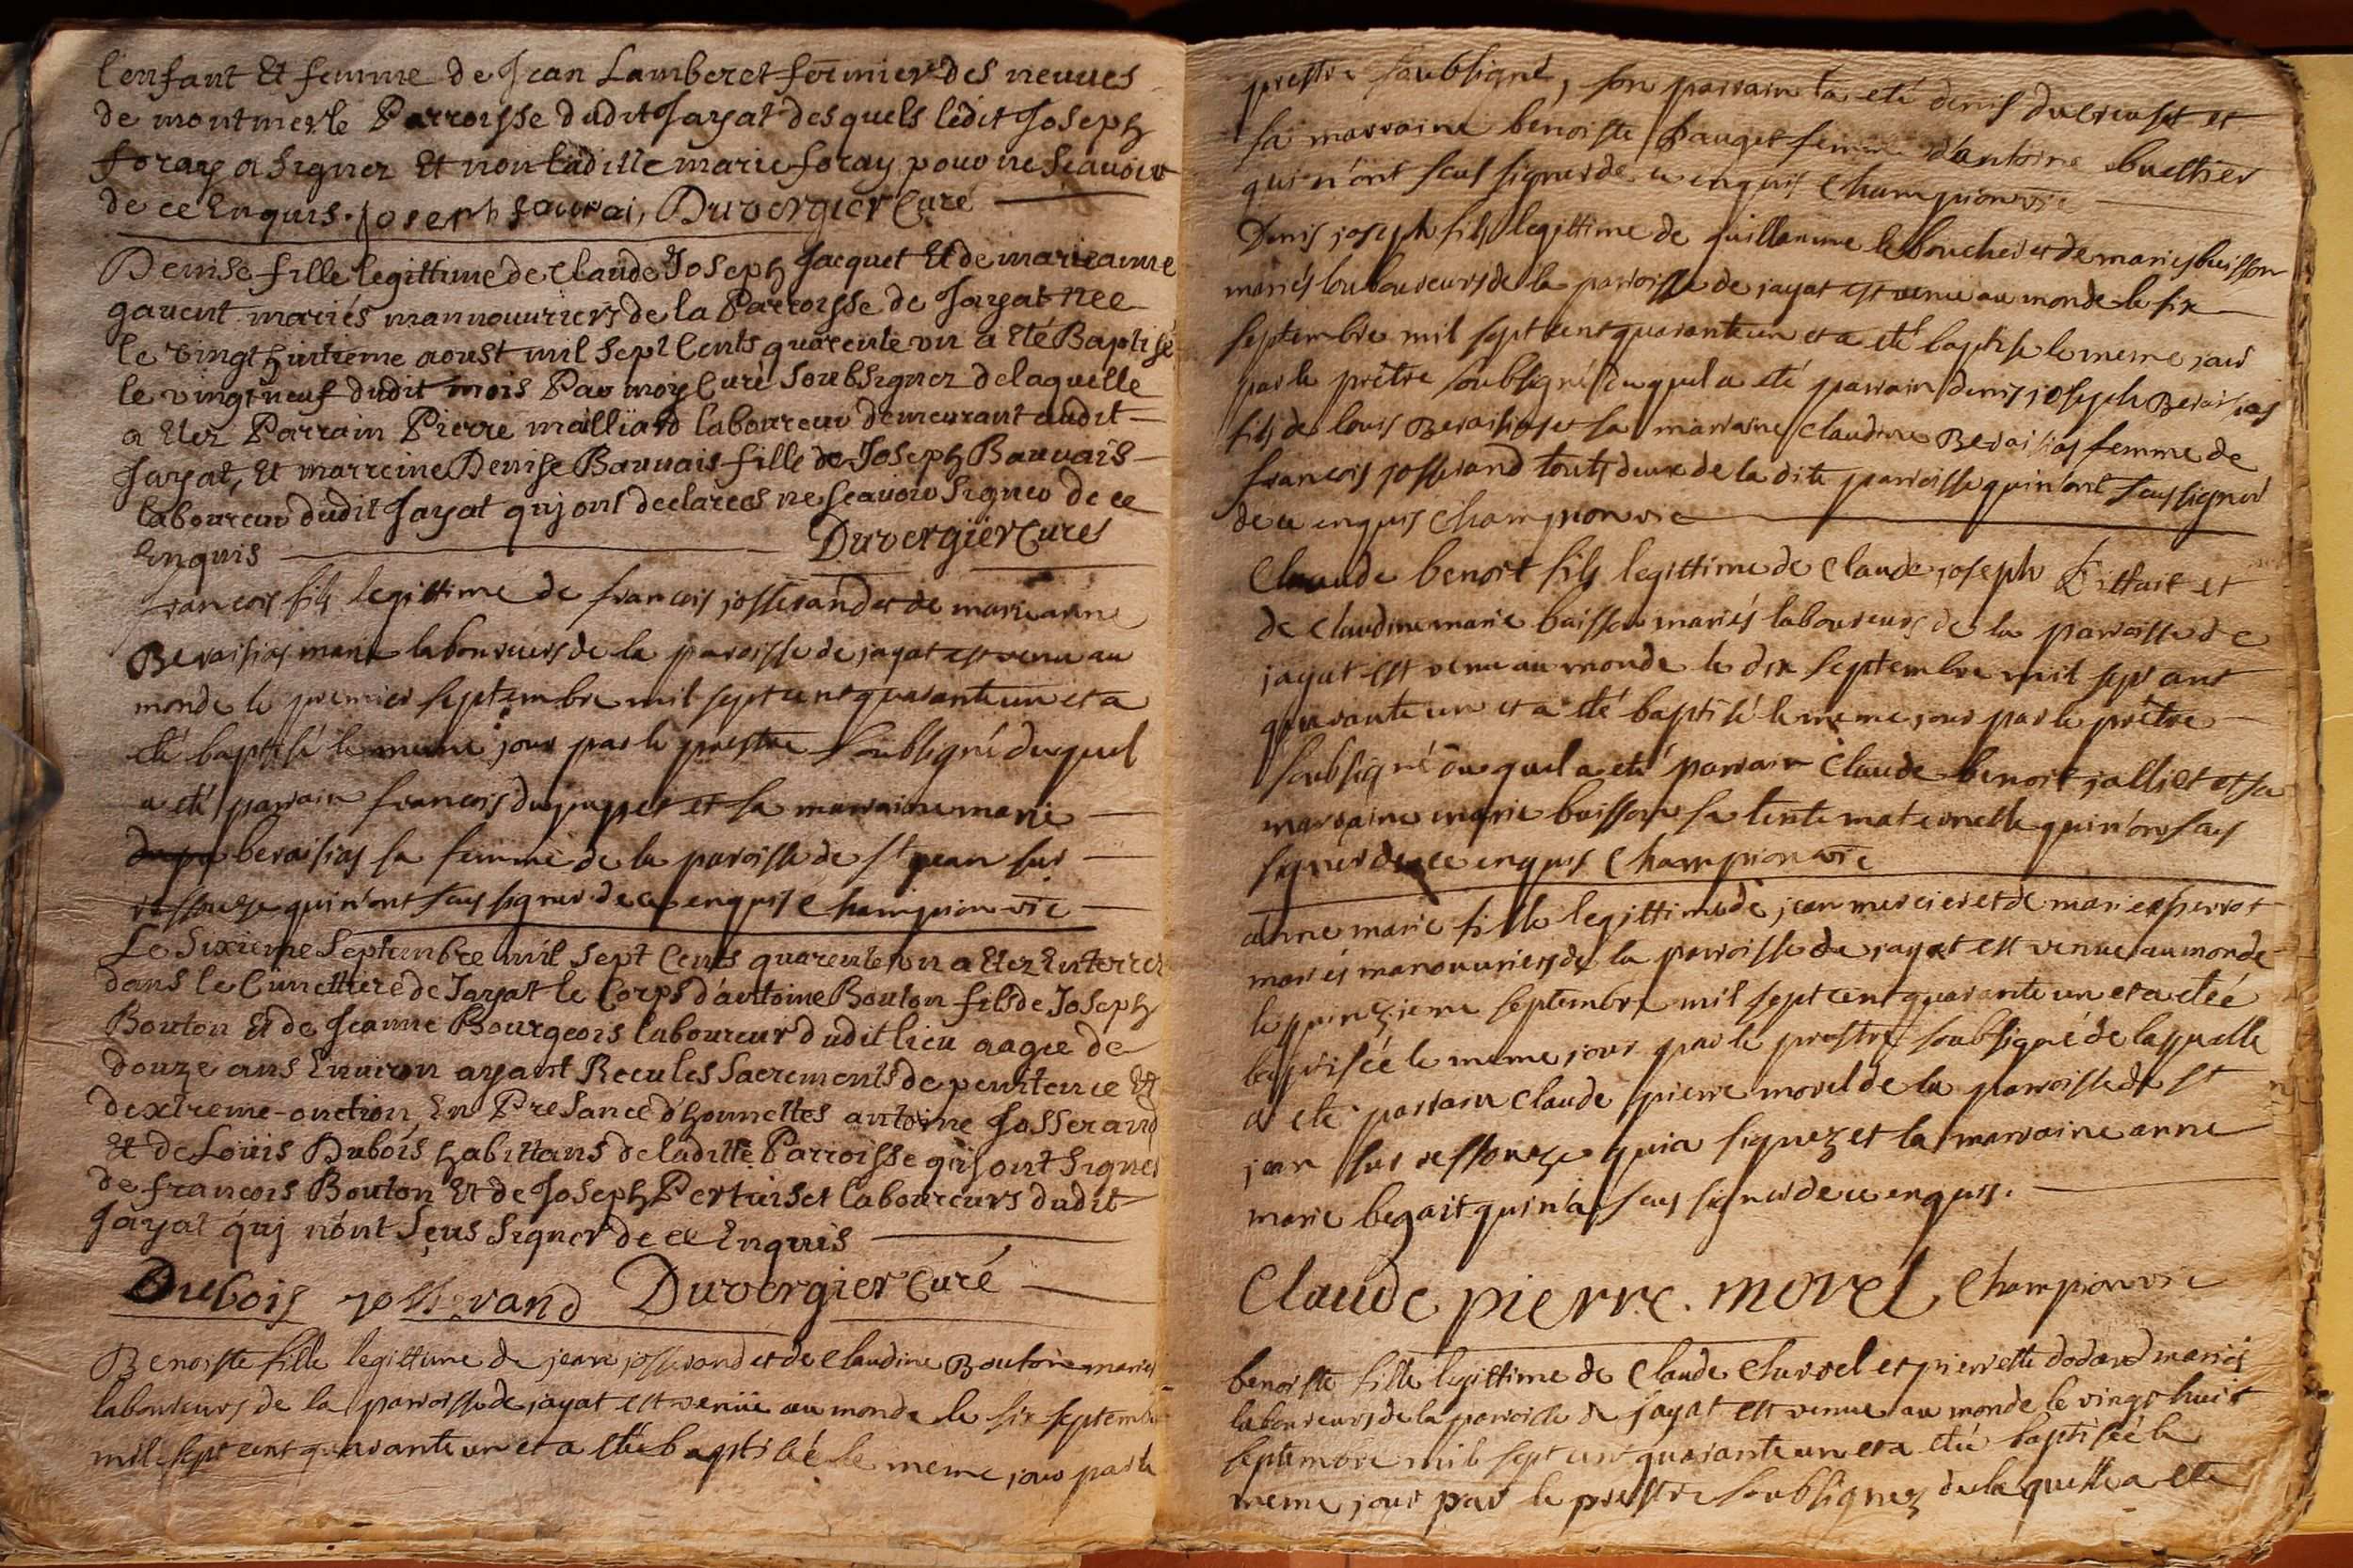 l'enfant Et femme de Jean Lamberet fermier des neuves
de montmerle Parroisse dudit Jayat desquels ledit Joseph
foray a signer Et non ladille marie foray pour ne sçavoir
de ce Enquis. joseph fourai, Duvergier Curé
Denise fille legittime de Claude Joseph Jacquet Et de marieanne
gavent mariés mannouvriers de la Parroisse de Jayat nee
le vingt huitieme aoust mil sept Cents quarente un a Eté Baptisé
le vingt neuf dudit mois Par moy Curé Soubsigner delaquelle
a Etez Parrain Pierre mailliard laboureur demeurant audit
Jayat, Et marreine Denise Bauvais fille de Joseph Bauvais
laboureur dudit Jayat quj ont declarees ne sçavoir signer de ce
Enquis Duvergier Cures
francois fils legittime de francois josserand et de marieanne
Beraisias marié laboureurs de la paroisse de jayat est venu au
monde le premier septembre mil sept cent quarante un et a
eté baptisé le meme jour par le prestre soubsigné duquel
a eté parrain francois dupuppet et sa marraine marie
dupu beraisias sa femme de la paroisse de st jean sur
ressouze qui n'ont sçus signer de ce enquis Champion vic
Le Sixieme Septembre mil sept Cents quarente un a Etez Enterrer
dans le Cimettiere de Jayat le Corps d'antoine Bouton fils de Joseph
Bouton Et de Jeanne Bourgeois laboureur dudit lieu aagee de
douze ans Environ ayant Recu les Sacrements de penitence Et
dextreme-onction, En Presance d'honnettes antoine Josserand
Et de Loüis Dubois habittans de laditte Parroisse quj ont signer
de francois Bouton Et de Joseph Pertuiset laboureurs dudit
Jayat quj n'ont sçus signer de ce Enquis
Dubois josserand Duvergier Curé
Benoiste fille legittime de jean josserand et de Claudine Bouton mariés
laboureurs de la parroisse de jayat est venüe au monde le six septembre
mil sept cent quarante un et a eteé baptiseé le meme jour par le
prestre soubsigné, son parrain a eté denis ducreuset et
sa marraine benoiste pauget femme d'antoine buethier
qui n'ont sçus signer de ce enquis Champion vic
Denis joseph fils legittime de guillaume leboucher et de marie buisson
mariés laboureurs de la parroisse de jayat est venu au monde le six
septembre mil sept cent quarante un et a eté baptisé le meme jour
par le prêtre soubsigné duquel a eté parrain denis joseph Beraisias
fils de louis Beraisias et sa marraine Claudine Beraisias femme de
francois josserand touts deux de la dite parroisse qui n'ont sçus signer
de ce enquis Champion vic
Claude benoit fils legittime de Claude joseph fillait et
de Claudine marie buisson mariés laboureurs de la parroisse de
jayat est venu au monde le dix septembre mil sept cent
quarante un et a eté baptisé le meme jour par le prêtre
soubsigné duquel a eté parrain Claude benoit jalliet et sa
marraine marie buisson sa tente maternelle qui n'ont sçus
signer de ce enquis Champion vic
anne marie fille legittime de jean mercier et de marie perrot
mariés manouvriers de la parroisse de jayat est venue au monde
le quinzieme septembre mil sept cent quarante un et a eteé
baptiseé le meme jour par le prestre soubsigné de laquelle
a eté parrain Claude pierre morel de la parroisse de st
jean sur ressouze qui a signez et la marraine anne
marie begait qui n'a sçus signer de ce enquis.
Claude pierre. morel Champion vic
benoiste fille legittime de Claude Churvel et pierrette dodard mariés
laboureurs de la paroisse de jayat est venue au monde le vingt huit
septembre mil sept cent quarante un et a eteé baptiseé le
meme jour par le prestre soubsignez de laquelle a eté